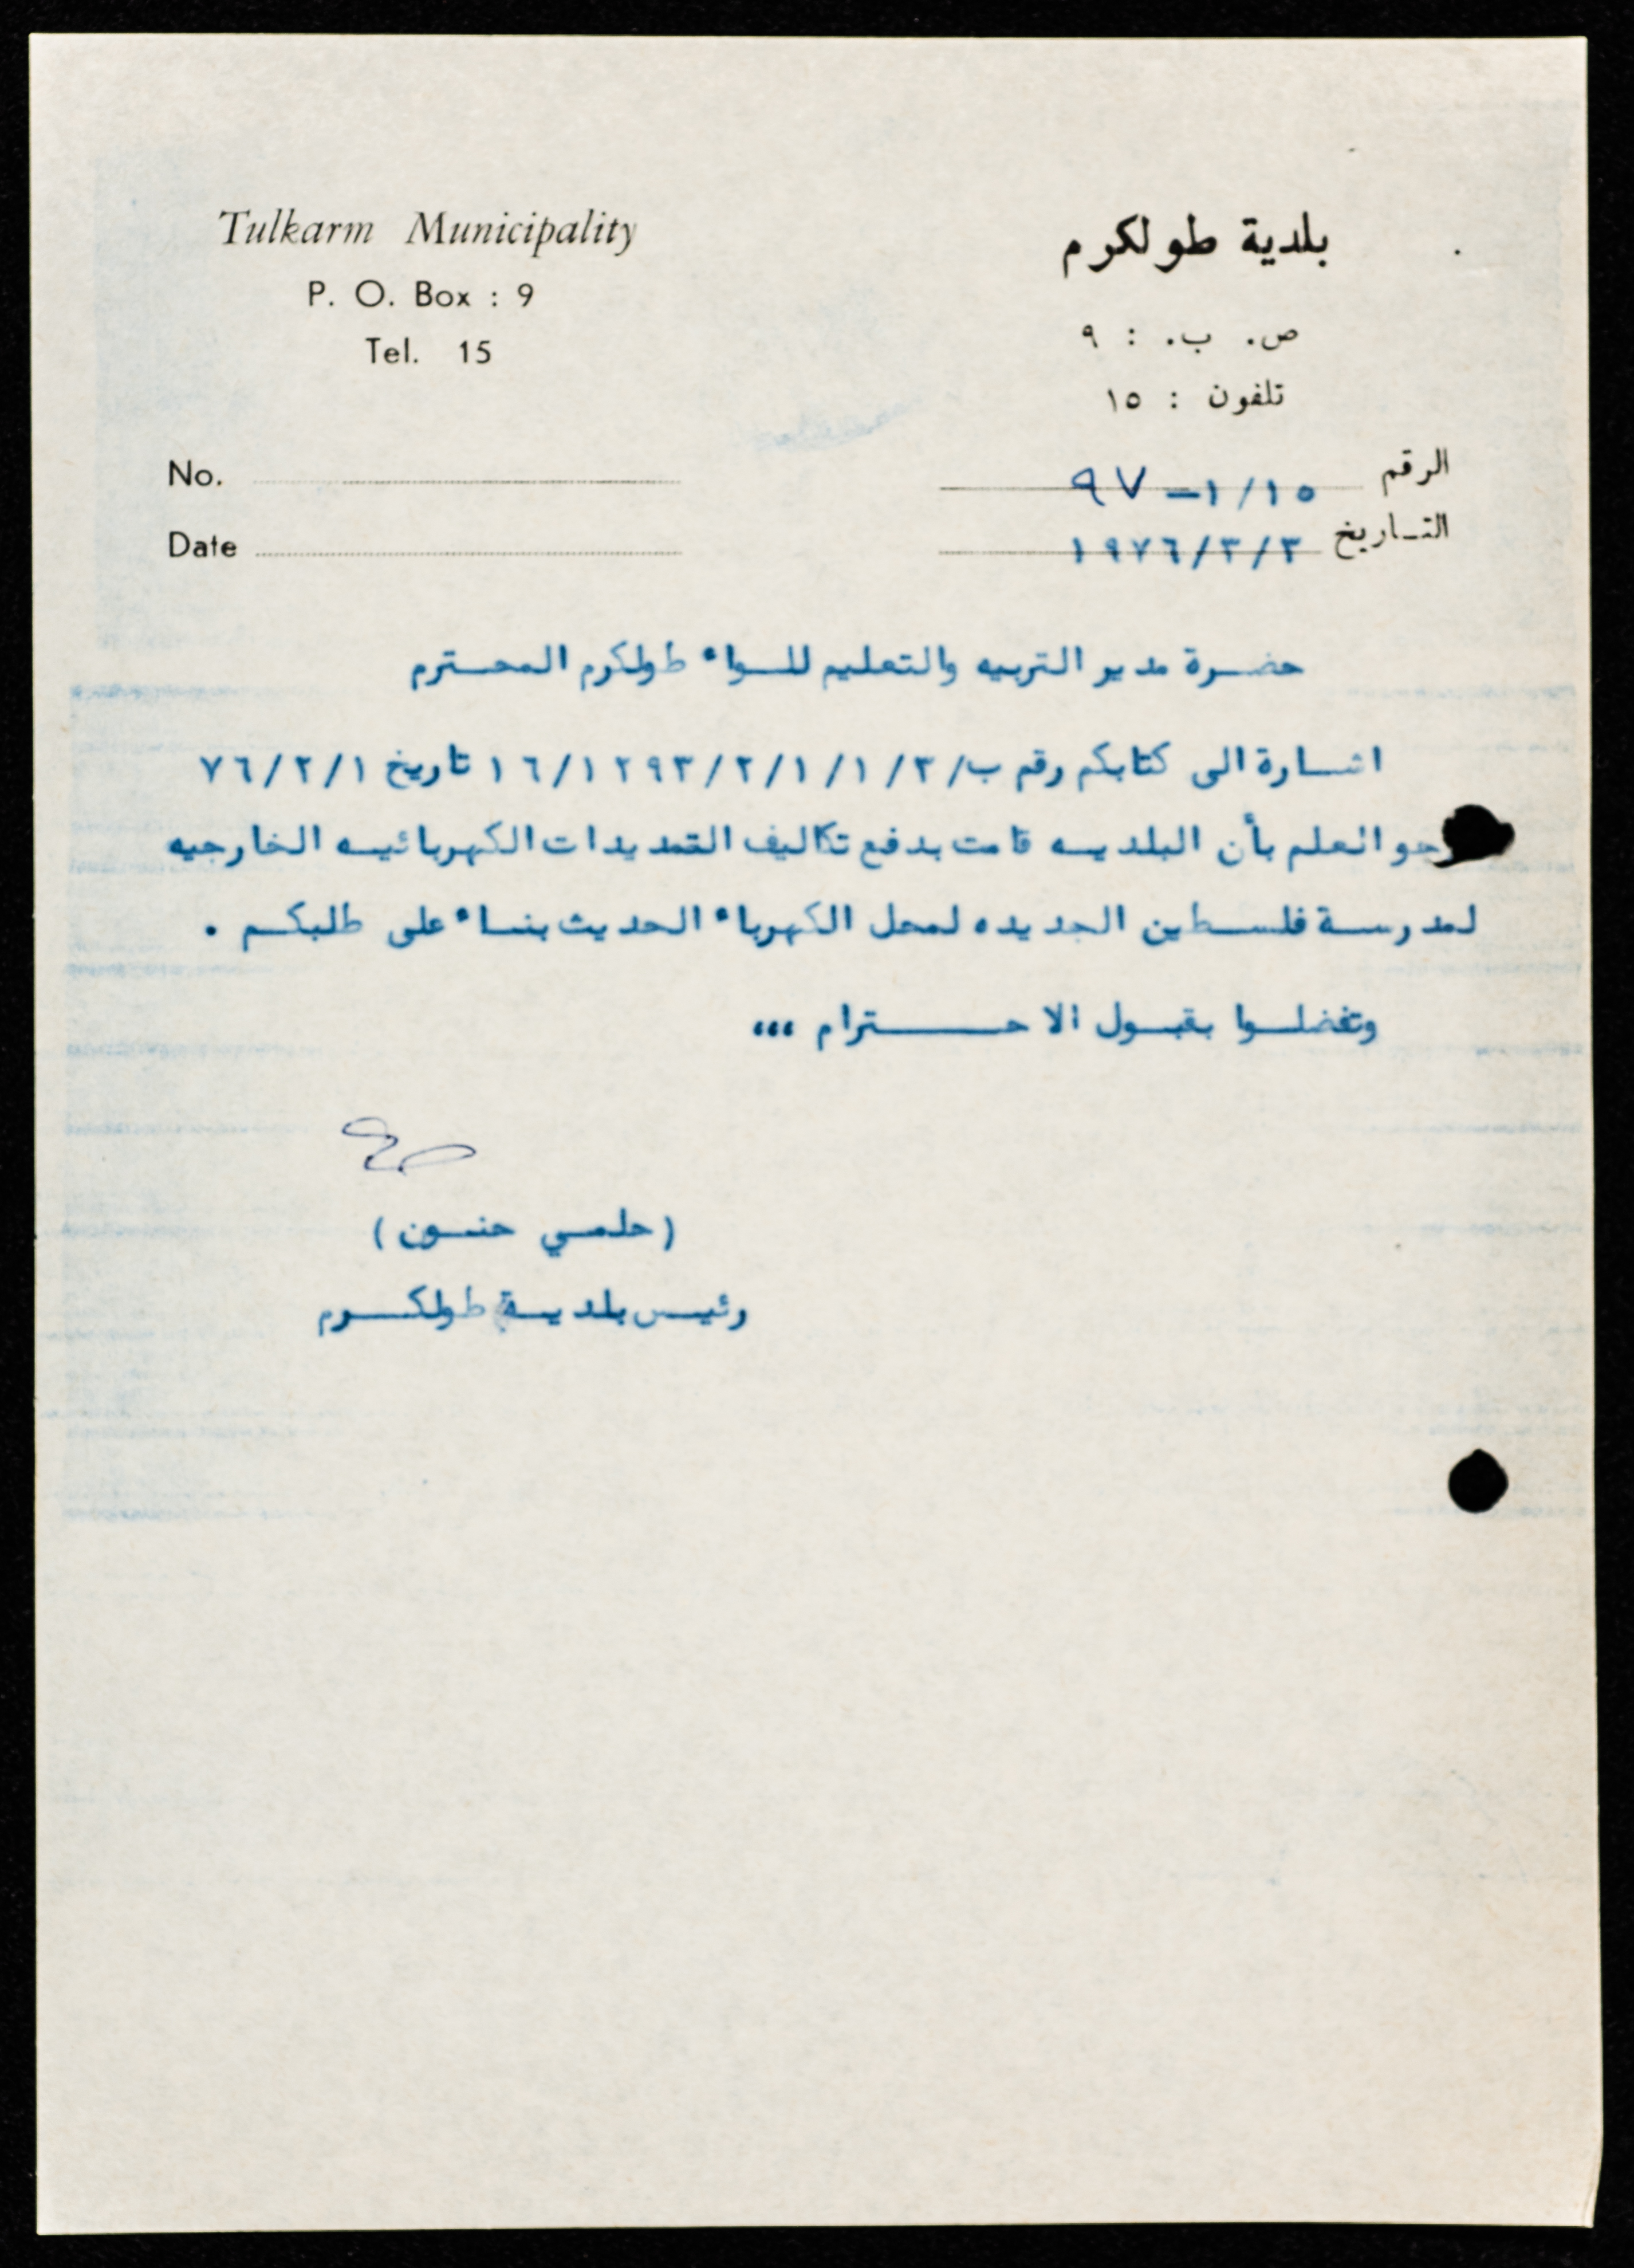 Tulkarm Municipality
P. O. Box : 9
Tel. 15
No.
Date
بلدية طولكرم
ص. ب. : ٩
تلفون : ١٥
الرقم ١/١٥ - ٩٧
التاريخ ١٩٧٦/٣/٣
حضرة مدير التربيه والتعليم للواء طولكرم المحترم
اشارة الى كتابكم رقم ب/١٦/١٢٩٣/٢/١/١/٣ تاريخ ٧٦/٢/١
العلم بأن البلديه قامت بدفع تكاليف التمديدات الكهربائيه الخارجيه
لمدرسة فلسطين الجديده لمحل الكهرباء الحديث بناء على طلبكم .
وتفضلوا بقبول الاحترام ،،،
( حلمي حنون )
رئيس بلدية طولكرم